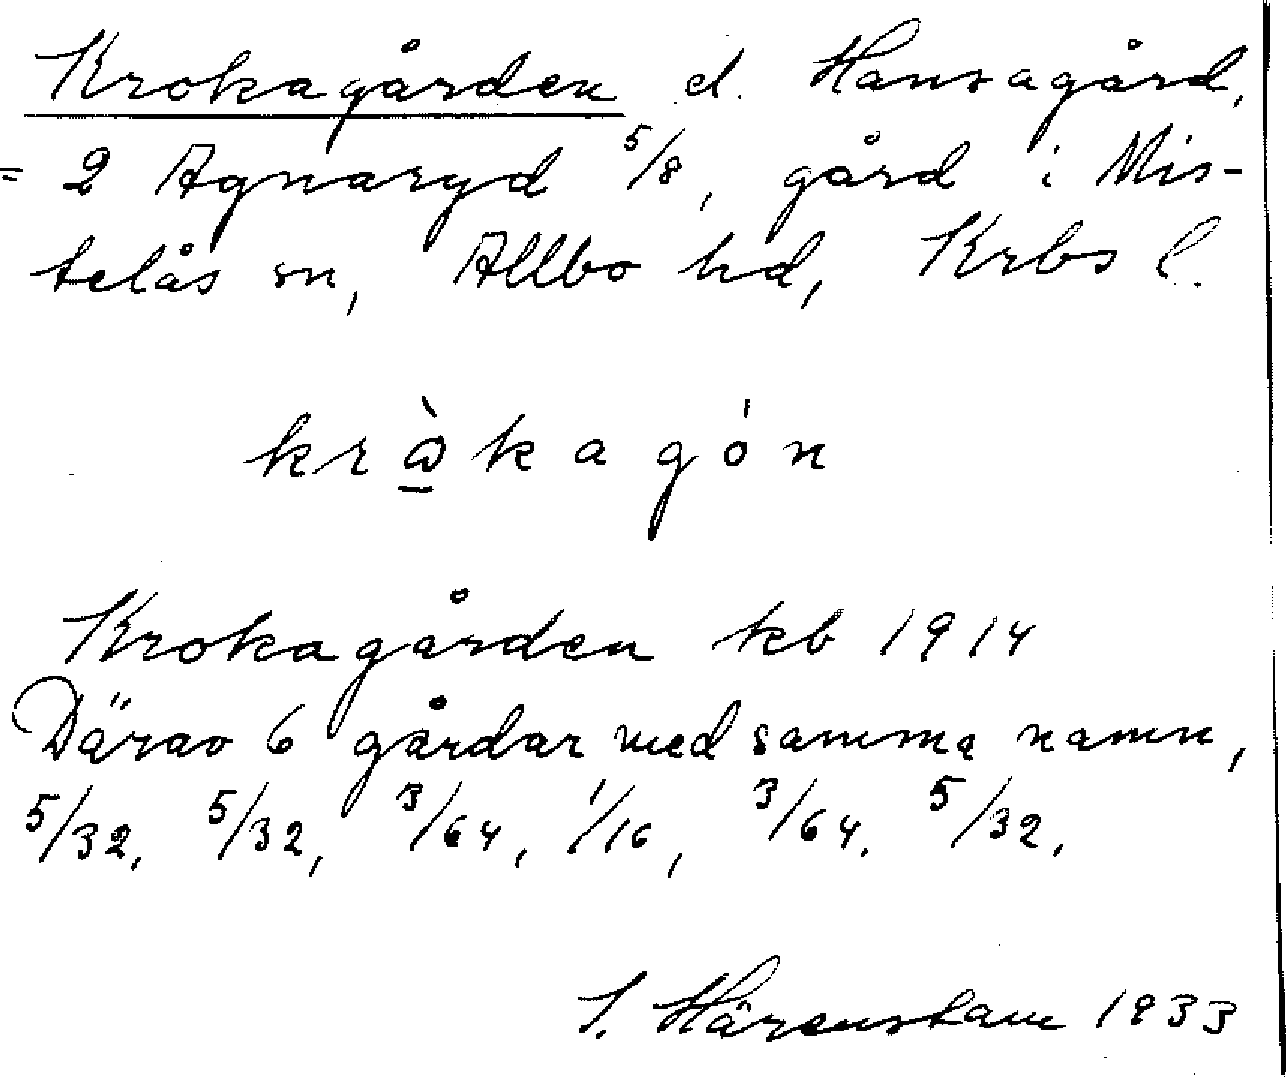 Krokagården el. Hansagård,
= 2 Agnaryd 5/8, gård i Mis-
telås sn, Allbo hd, Krbs l.
krὼ̲kagón
Krokagården kb 1914
Därav 6 gårdar med samma namn,
5/32, 5/32, 3/64, 1/16, 3/64, 5/32.
S. Härenstam 1933